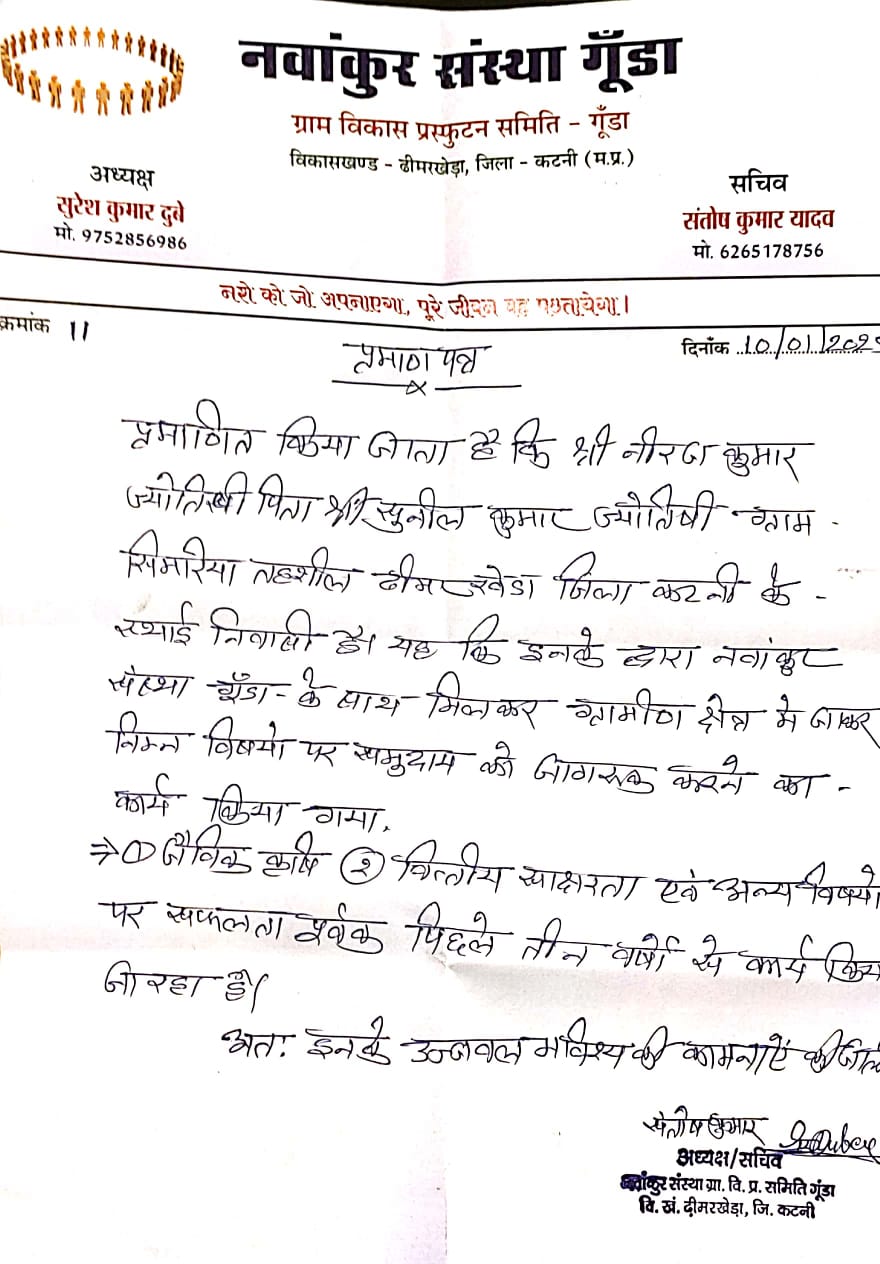 नवांकुर संस्था गूँडा
ग्राम विकास प्रस्फुटन समिति - गूँडा
विकासखण्ड - ढीमरखेड़ा, जिला - कटनी (म.प्र.)
अध्यक्ष
सुरेश कुमार दुबे
मो. 9752856986
सचिव
संतोष कुमार यादव
मो. 6265178756
नशे को जो अपनाएगा, पूरे जीवन वह पछतायेगा।
क्रमांक 11
दिनाँक 10/01/2025
प्रमाण पत्र
प्रमाणित किया जाता है कि श्री नीरज कुमार
ज्योतिषी पिता श्री सुनील कुमार ज्योतिषी ग्राम -
सिमरिया तहशील ढीमरखेडा जिला कटनी के -
स्थाई निवासी है। यह कि इनके द्वारा नवांकुर
संस्था गूँडा - के साथ मिलकर ग्रामीण क्षेत्र मे जाकर
निम्न विषयो पर समुदाय को जागरूक करने का -
कार्य किया गया.
⇒ ① जैविक कृषि ② वित्तीय साक्षरता एवं अन्य विषयो
पर सफलता पूर्वक पिछले तीन वर्षो से कार्य किया
जा रहा है।
अतः इनके उज्जवल भविष्य की कामनाएं की जाती
संतोष कुमार SKDubey
अध्यक्ष/सचिव
नवांकुर संस्था ग्रा. वि. प्र. समिति गूंडा
वि. खं. ढीमरखेड़ा, जि. कटनी